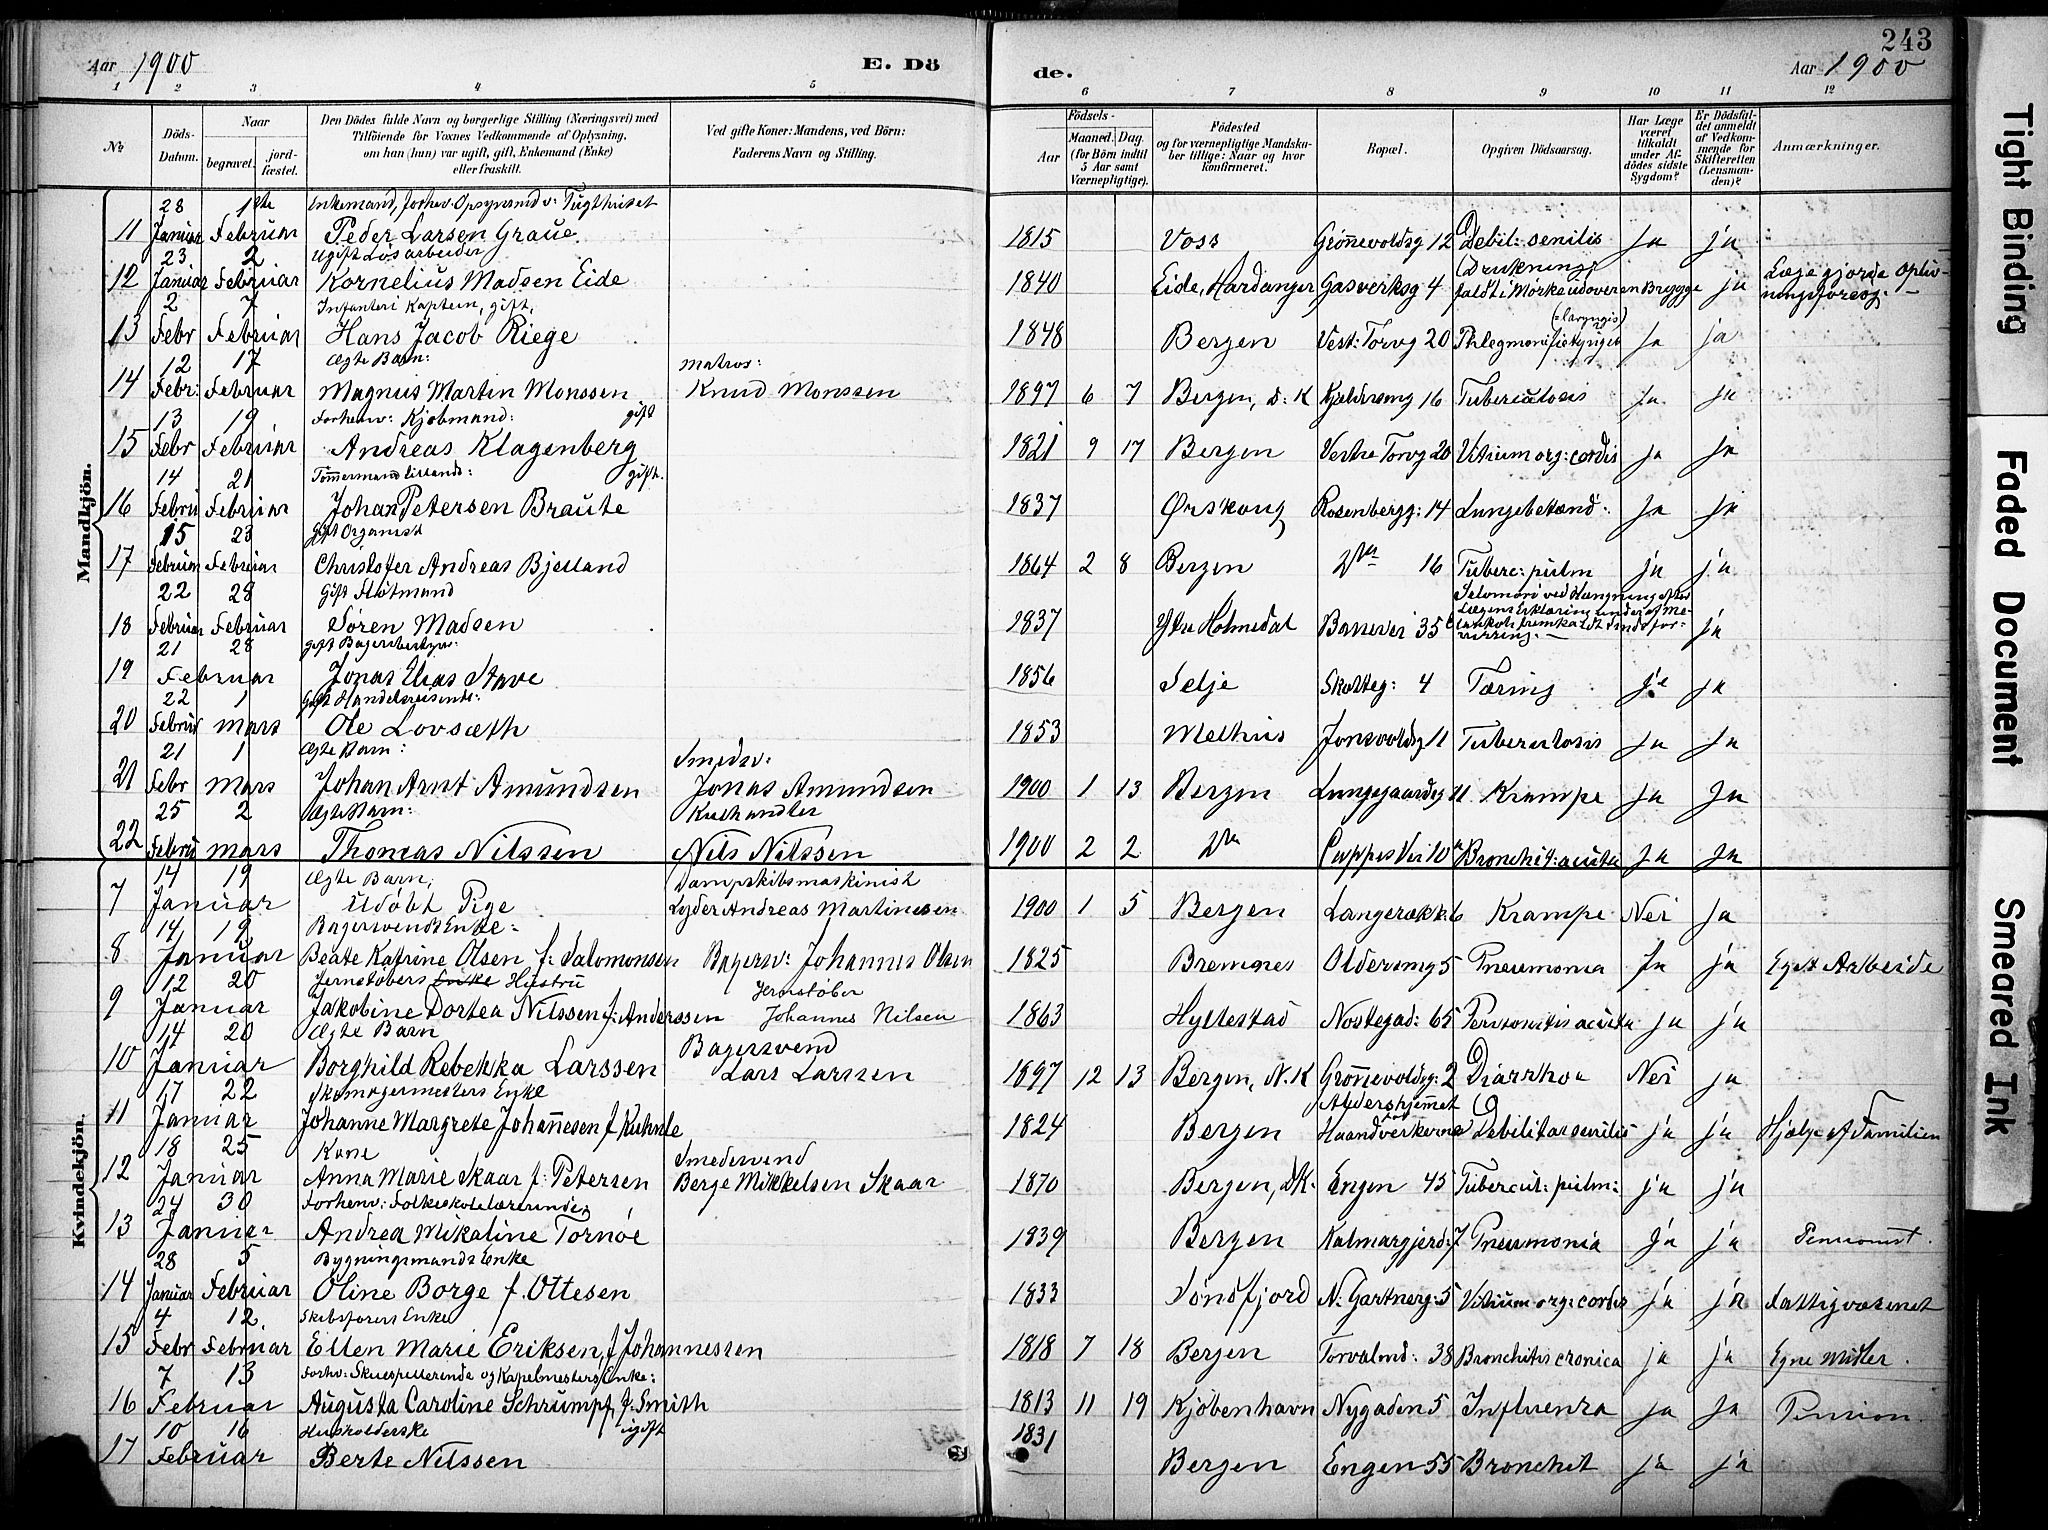 243
Aar 1900 E. Dö de. Aar 1900
1 2 3 4 5 6 7 8 9 10 11 12
No
Döds-Datum.
Naar
begravet.
jord-fæstet.
Den Dödes fulde Navn og borgerlige Stilling (Næringsvei) med
Tilföiende for Voxnes Vedkommende af Oplysning,
om han (hun) var ugift, gift, Enkemand (Enke)
eller fraskilt.
Ved gifte Koner: Mandens, ved Börn:
Faderens Navn og Stilling.
Födsels-
Aar
Maaned. Dag.
(for Börn indtil
5 Aar samt
Værnepligtige).
Födested
og for værnepligtige Mandska-
ber tillige: Naar og hvor
konfirmeret.
Bopæl.
Opgiven Dödsaarsag.
Har Læge
været
tilkaldt
under Af-
dödes sidste
Sygdom?
Er Dödsfal-
det anmeldt
af Vedkom-
mende for
Skifteretten
(Lensman-
den)?
Anmærkninger.
Mandkjön.
28 1ste Enkemand, forhev. Opsynsmd v: Tugthuset
11 Januar Februar Peder Larsen Graue 1815 Voss Grönnevoldsg 12 Debil: senilis Ja ja
23 2 Ugift Løsarbeider
12 Januar Februar Kornelius Madsen Eide 1840 Eide, Hardanger Gasverksg 4 (Drukning) faldt i Mørke udover en Brygge ja Læge gjorde Opliv-
ningsforsøg. —
2 7 Infanteri Kaptein, gift.
13 Febr Februar Hans Jacob Riege 1848 Bergen Vest: Torvg 20 (= laryngis) Ja ja
12 17 Ægte Barn: Matros:
14 Febr: Februar Magnus Martin Monssen Knud Monssen 1897 6 7 Bergen, D: K 16 Tuberculosis Ja Ja
13 19 Forhenv: Kjøbmand: gift
15 Febr Februar Andreas Klagenberg 1821 9 17 Bergen Vestre Torvg 20 Vitium org: cordis ja ja
14 21 gift.
16 Febru Februar Johan Petersen Braute 1837 Ørskoug Rosenbergg: 14 Lungebetænd: Ja ja
15 23 gift Organist
17 Februar Februar Christofer Andreas Bjelland 1864 2 8 Bergen Do 16 Tuberc: pulm ja ja
22 28 Gift Fløtmand
18 Februar Februar Søren Madsen 1837 Ytre Holmedal Banevei 35 Selvmord ved Hængning efter
Lægens Erklæring under af Me-
lankoli fremkaldt Sindsfor-
virring. — ja
21 28 gift
19 Februar Jonas Elias Stave 1856 Selje Skotteg: 4 Tæring ja ja
22 1 Gift Handelsreisende:
20 Februar Mars Ole Lovsæth 1853 Melhus Jonsvoldsg 11 Tuberculosis Ja Ja
21 1 Ægte Barn: Smedsv:
21 Febr Mars Johan Arnt Amundsen Jonas Amundsen 1900 1 13 Bergen Lungegaardsg 11 Krampe Ja Ja
25 2 Ægte Barn: Kulhandler
22 Februar Mars Thomas Nilssen Nils Nilssen 1900 2 2 Do 10 Bronchit: acuta Ja Ja
Kvindekjön.
14 19 Ægte Barn, Dampskibsmaskinist
7 Januar Udøbt Pige Lyder Andreas Martinussen 1900 1 5 Bergen Langerækk: 6 Krampe Nei Ja
14 19 Bagersvends Enke:
8 Januar Beate Katrine Olsen f: Salomonsen Bagersv: Johannes Olsen 1825 Bremnes Oldersmg 5 Pneumonia Ja ja Eget Arbeide
12 20 Jernstøbers Enke Hustru Jernstøber
9 Januar Jakobine Dortea Nilssen f: Anderssen Johannes Nilsen 1863 Hyllestad Nøstegad: 65 Peritonitis acuta ja ja
14 20 Ægte Barn Bagersvend
10 Januar Borghild Rebekka Larssen Lars Larssen 1897 12 13 Bergen, N. K Grönnevoldsg: 2 Diarrhoe Nei ja
17 22 Skomagermesters Enke
11 Januar Johanne Margrete Johannesen f Kuhnle 1824 Bergen Aldershjemmet for Haandværkerne Debilitas senilis ja ja Hjælp af Familien
18 25 Kone Smedsvend
12 Januar Anna Marie Skaar f: Petersen Berge Mikkelsen Skaar 1870 Bergen, DK. Engen 45 Tubercul: pulm: ja ja
24 30 Forhenv: Folkeskolelærerinde
13 Januar Andrea Mikaline Tornöe 1839 Bergen Kalmargjerd: 7 Pneumonia Ja ja Pensionist.
28 5 Bygningsmands Enke
14 Januar Februar Oline Borge f. Ottesen 1833 Söndfjord N. Gartnerg: 5 Vitium org: cordis ja ja Fattigvæsenet
4 12. Skibsførers Enke
15 Febr Februar Ellen Marie Eriksen, f Johannessen 1818 7 18 Bergen Torvalmd: 38 Bronchitis cronica ja ja Egne Midler.
7 13 Forhv: Skuespillerinde og Kapelmesters Enke:
16 Februar Augusta Caroline Schrumpf, f. Smith 1813 11 19 Kjøbenhavn Nygaden 5 Influenza ja Ja Pension.
10 16 Husholderske ugift
17 Februar Berte Nilssen 1831 Bergen Engen 55 Bronchit ja ja
Tight Binding
Faded Document
Smeared Ink